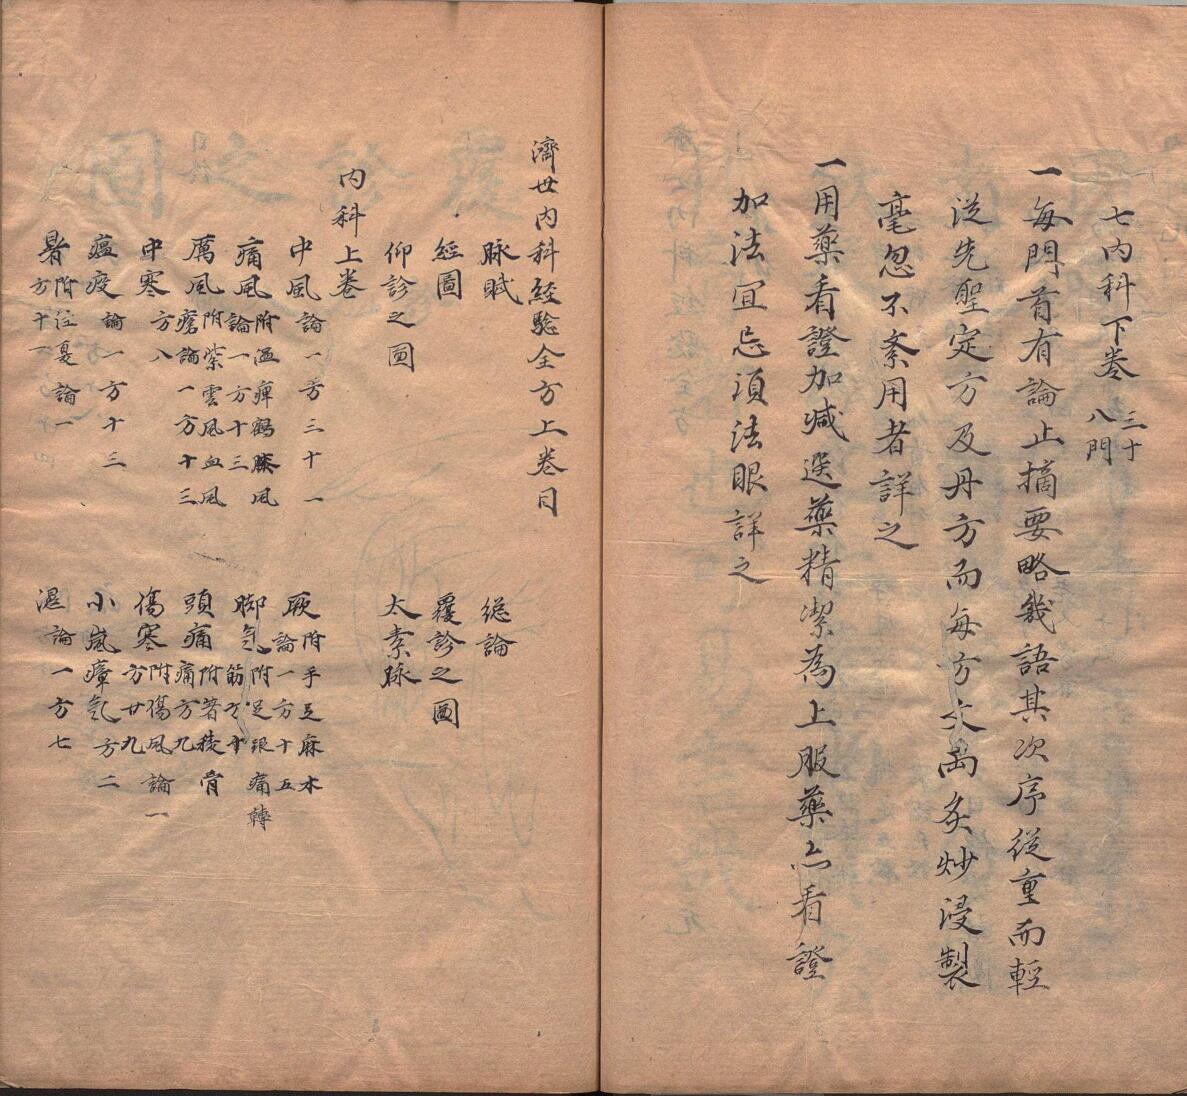 七内科下卷 三十八門
一每門首有論止摘要略幾語其次序從重而輕
從先聖定方及丹方而每方文㕮炙炒浸製
毫忽不紊用者詳之
一用藥看證加減選藥精潔為上服藥亦看證
加法宜忌須法眼詳之
濟世内科經驗全方上卷目
脉賦 總論
經圖 覆診之圖
仰診之圖 太素脉
内科上卷
中風論一方三十一 厥附手足麻木論一方十五
痛風附濕痺鶴膝風論一方十三 脚氣附足跟痛轉筋方十
厲風附紫雲風血風瘡論一方十三 頭痛附著稜骨痛方九
中寒方八 傷寒附傷風論一方廿九
瘟疫論一方十三 小嵐瘴氣方二
暑附注夏論一方十一 濕論一方七